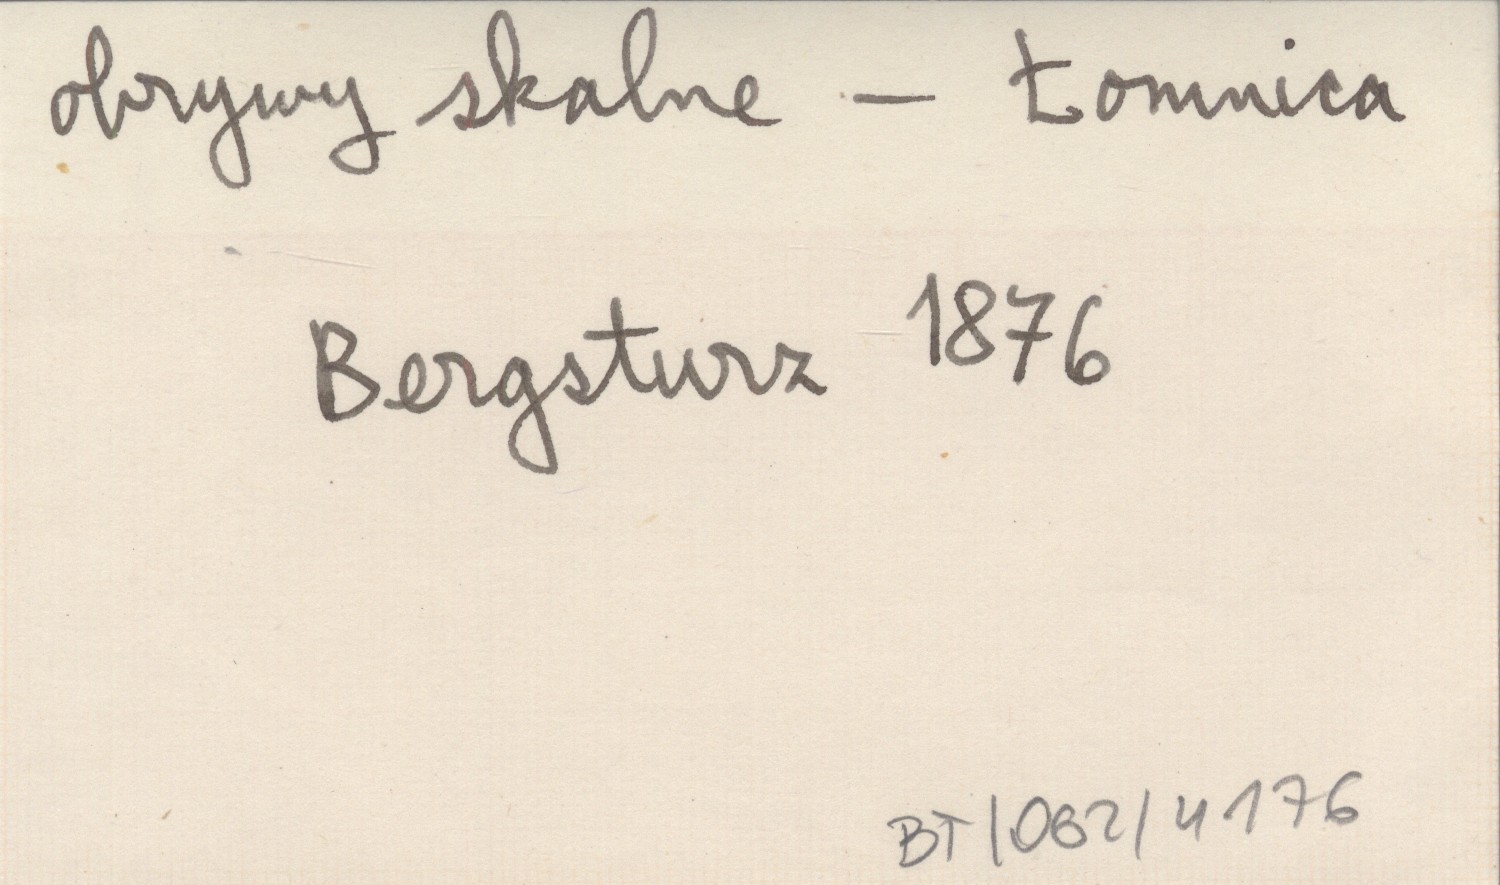 obrywy skalne — Łomnica
Bergsturz 1876
BT/062/4176